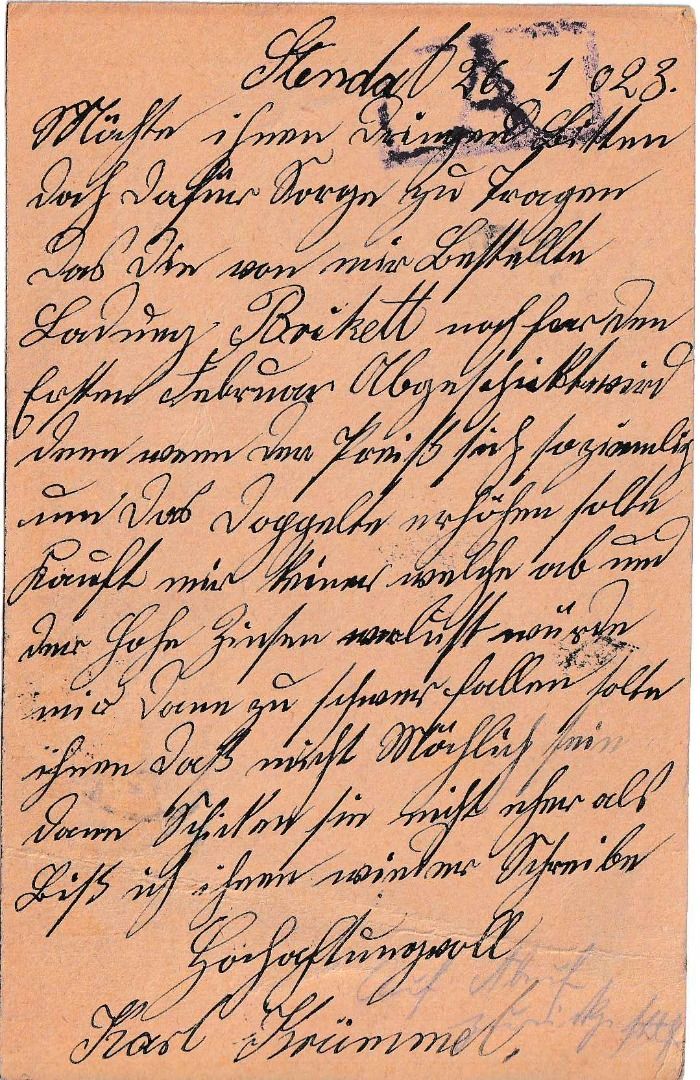 Stendal 26 1 023.
Möchte ihnen Dringend Bitten
doch dafür Sorge zu Tragen
das die von mir Bestellte
Ladung Brikett noch for den
Ersten Februar Abgeschicktwird
denn wenn der Preiß sich so ziemlig
um das doppelte erhöhen solte
Kauft mir keiner welche ab und
der hohe Zinsen verlust würde
mir dann zu schwer fallen solte
ihnen daß nicht Möchlich sein
dann Schicken sie nicht eher als
Biß ich ihnen wieder Schreibe
Hochachtungvoll
Karl Krümmel.
Auf Abruf